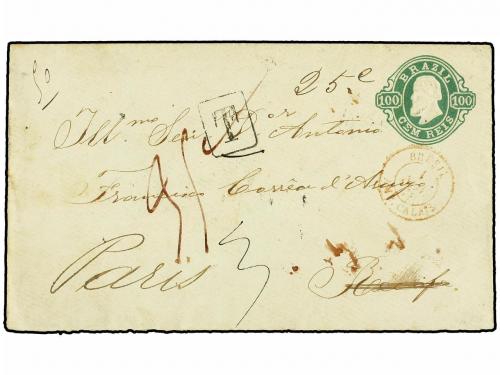 BRAZIL
100 100
CEM REIS
25c
T
Illmo Senr Dor Antonio
Francisco Corrêa d'Araujo
BRESIL
CALAIS
3
Paris
Recife